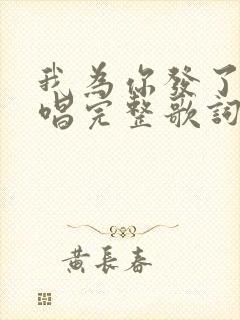 我為你發了
唱完整歌詞
黃長春